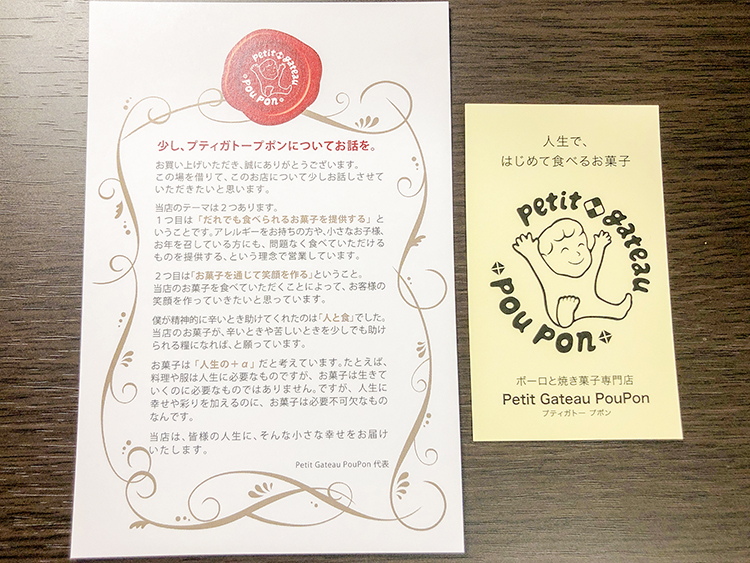 petit gateau
poupon
少し、プティガトープポンについてお話を。
お買い上げいただき、誠にありがとうございます。
この場を借りて、このお店について少しお話しさせて
いただきたいと思います。
当店のテーマは２つあります。
１つ目は「だれでも食べられるお菓子を提供する」と
いうことです。アレルギーをお持ちの方や、小さなお子様、
お年を召している方にも、問題なく食べていただける
ものを提供する、という理念で営業しています。
２つ目は「お菓子を通じて笑顔を作る」ということ。
当店のお菓子を食べていただくことによって、お客様の
笑顔を作っていきたいと思っています。
僕が精神的に辛いとき助けてくれたのは「人と食」でした。
当店のお菓子が、辛いときや苦しいときを少しでも助け
られる糧になれば、と願っています。
お菓子は「人生の＋α」だと考えています。たとえば、
料理や服は人生に必要なものですが、お菓子は生きて
いくのに必要なものではありません。ですが、人生に
幸せや彩りを加えるのに、お菓子は必要不可欠なもの
なんです。
当店は、皆様の人生に、そんな小さな幸せをお届け
いたします。
Petit Gateau PouPon 代表
人生で、
はじめて食べるお菓子
petit gateau
poupon
ボーロと焼き菓子専門店
Petit Gateau PouPon
プティガトー プポン